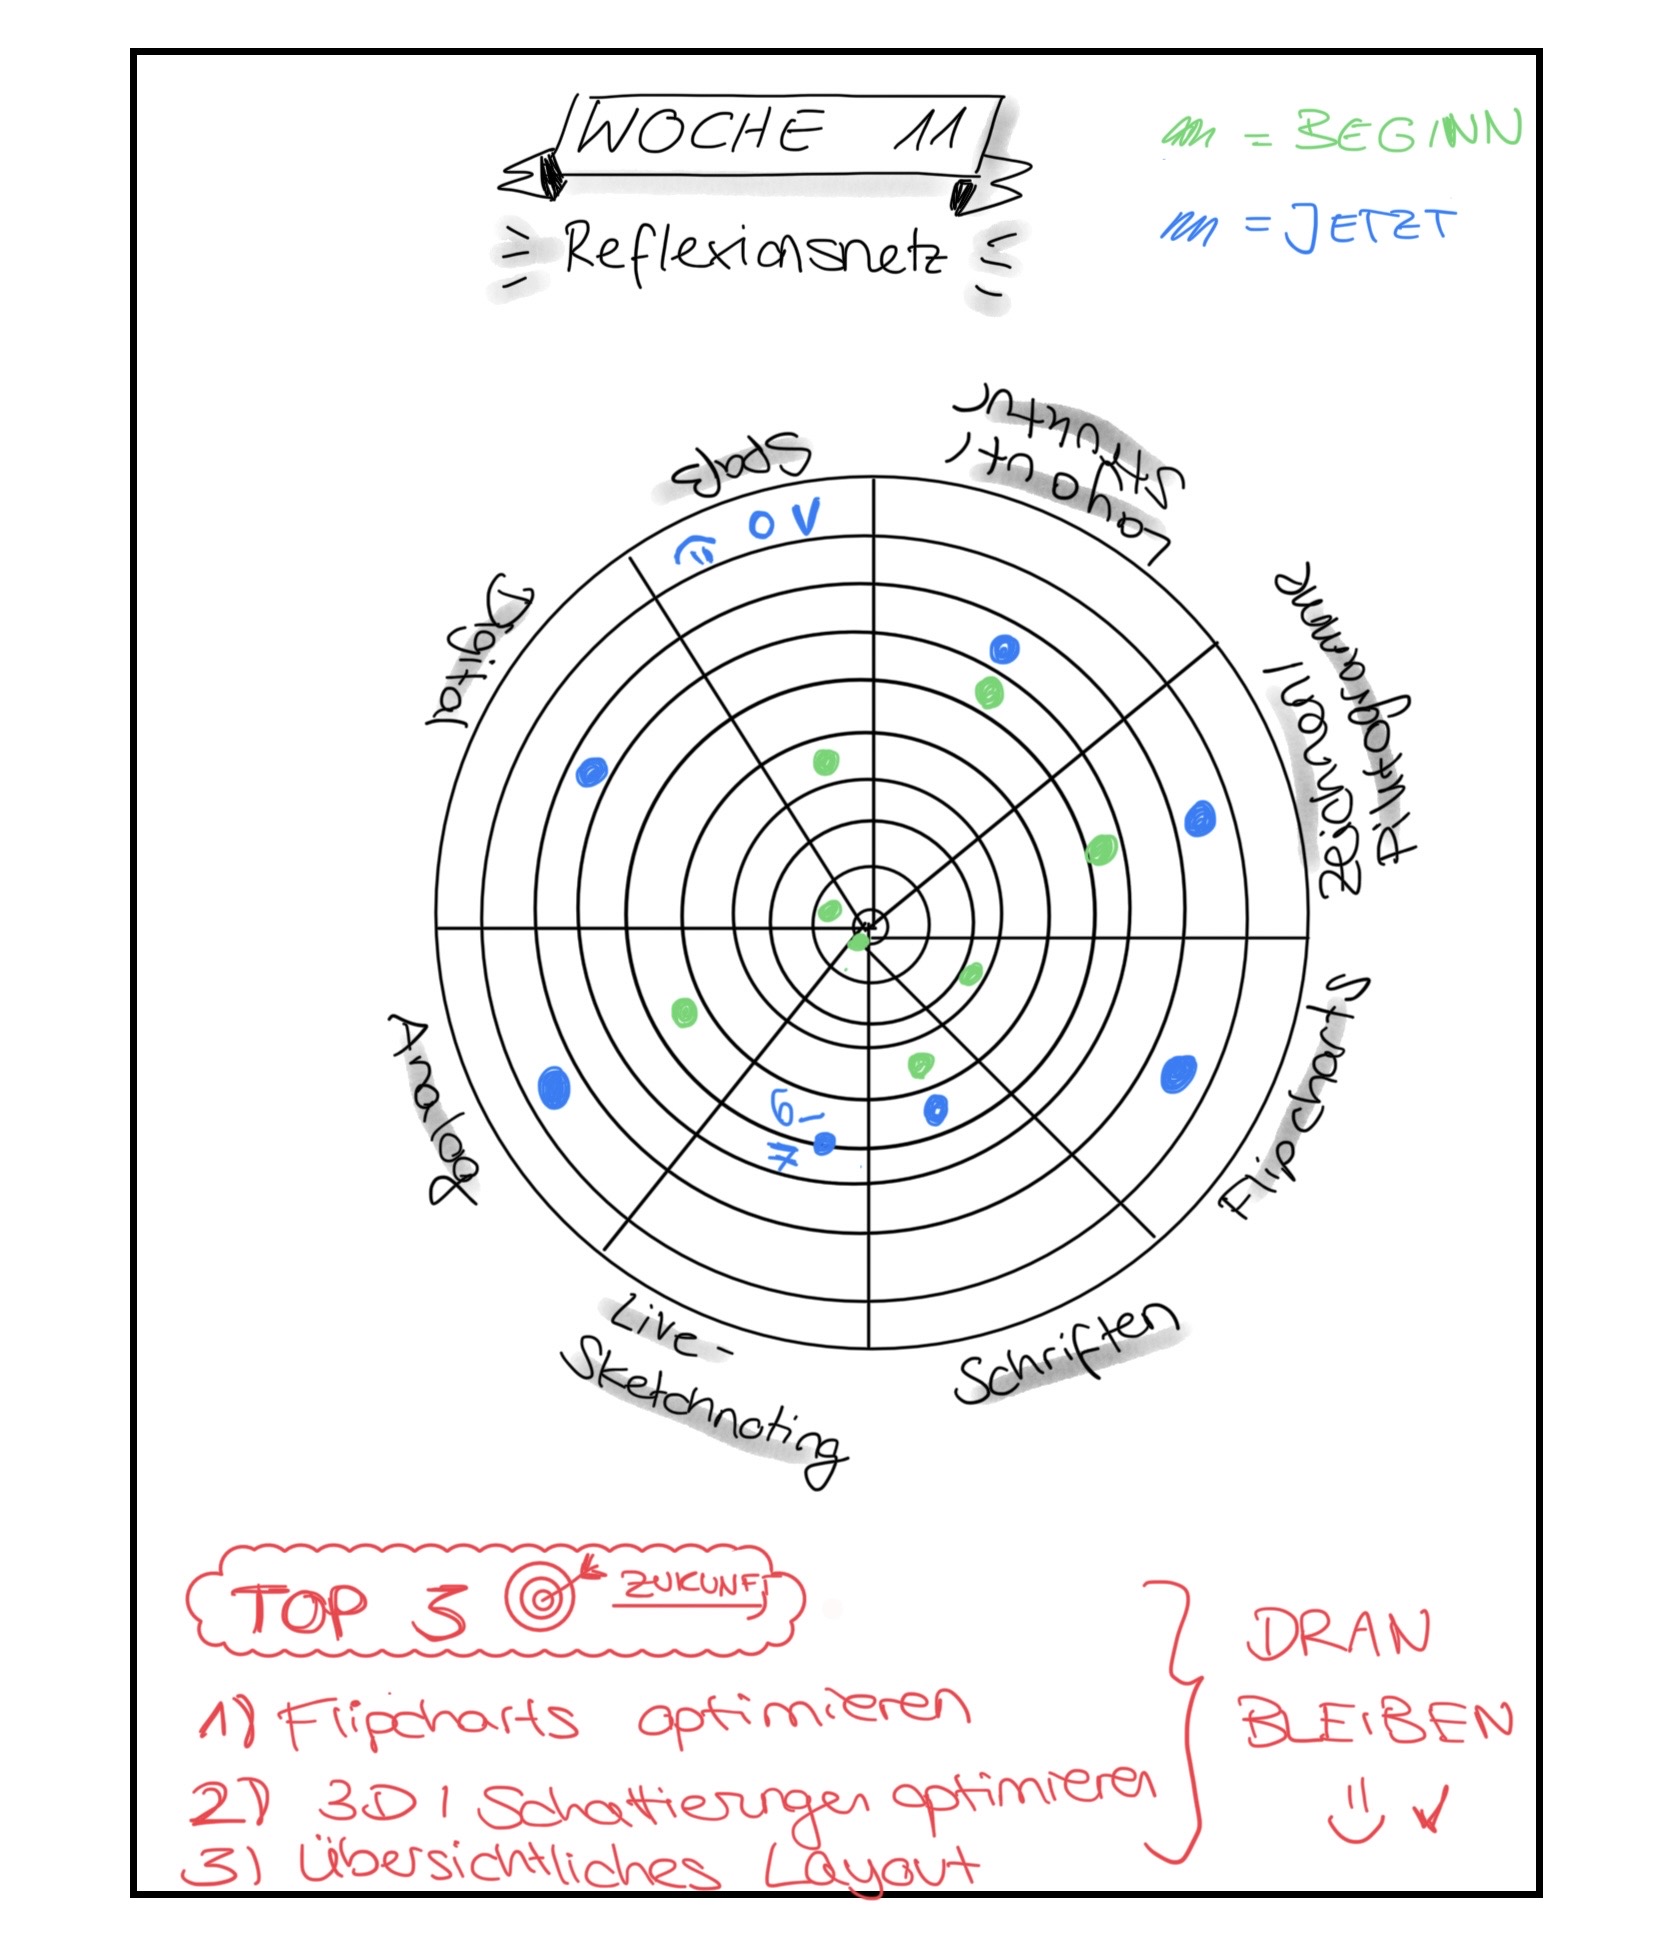 WOCHE 11
Reflexionsnetz
= BEGINN
= JETZT
Spaß
Layout/
Struktur
Zeichnen/
Piktogramme
Flipcharts
Schriften
Live-
Sketchnoting
Analog
Digital
10 V
6-
7
TOP 3 ZUKUNFT
1) Flipcharts optimieren
2) 3D / Schattierungen optimieren
3) Übersichtliches Layout
DRAN
BLEIBEN